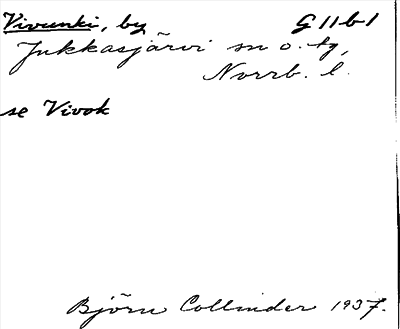 Vivunki, by G 11 b 1
Jukkasjärvi sn o. tg,
Norrb. l.
se Vivok
Björn Collinder 1937.